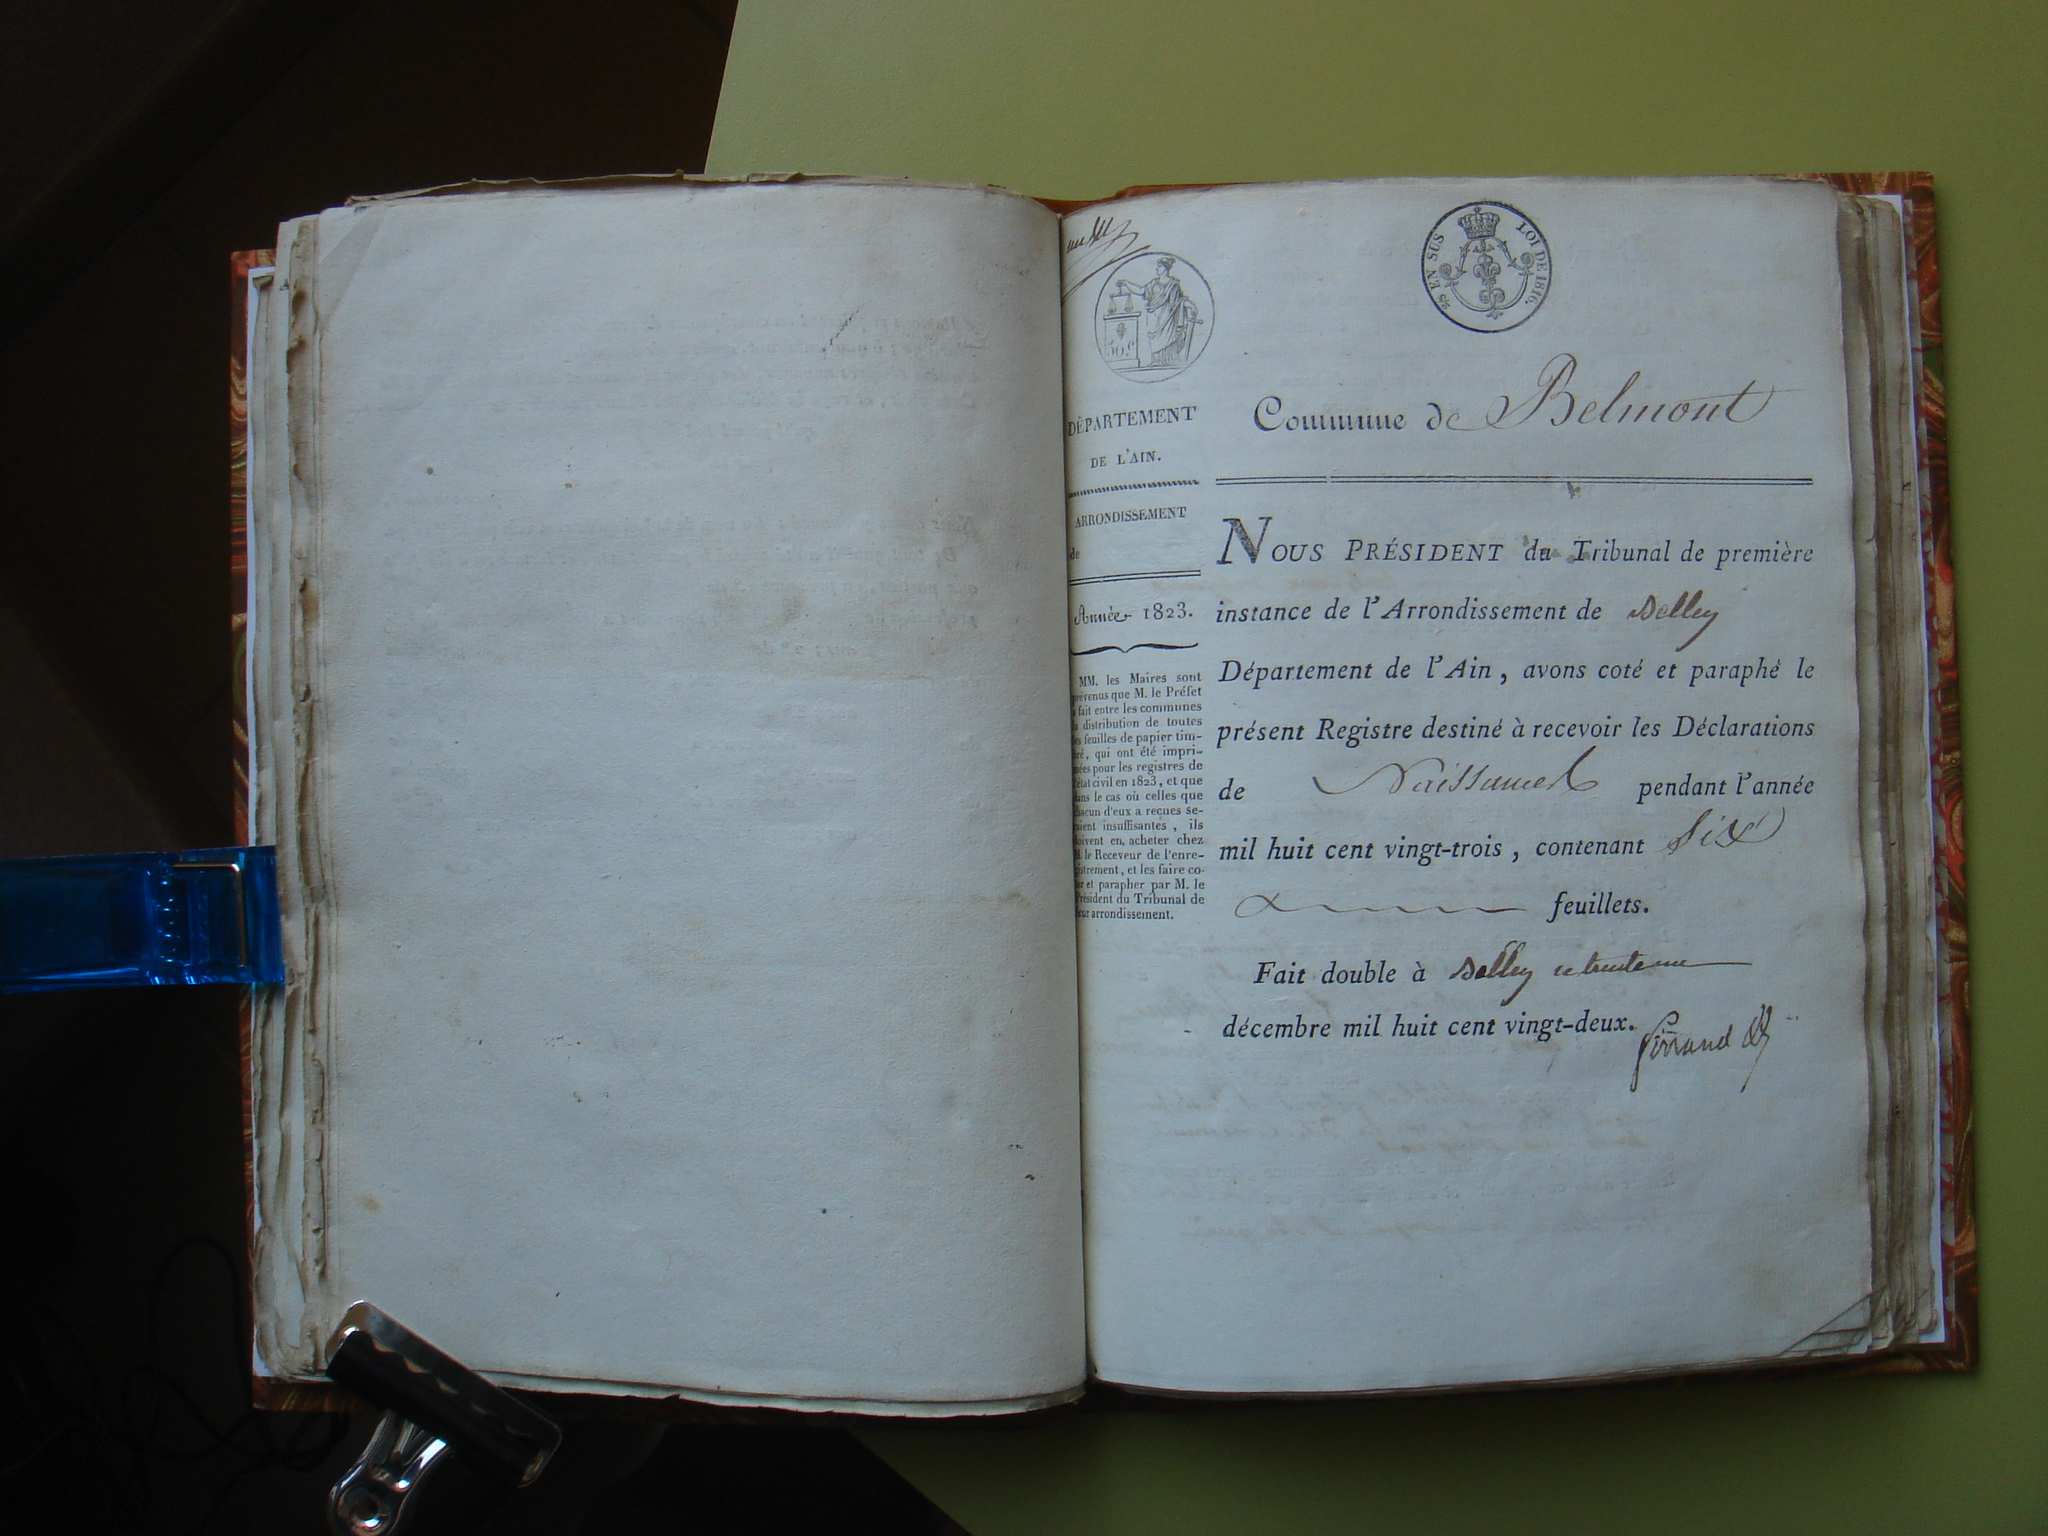 50 C.
¼ EN SUS
LOI DE 1816.
DÉPARTEMENT
DE L'AIN.
ARRONDISSEMENT
de
Année 1823.
MM. les Maires sont
prévenus que M. le Préfet
a fait entre les communes
la distribution de toutes
les feuilles de papier tim-
bré, qui ont été impri-
mées pour les registres de
l'état civil en 1823, et que
dans le cas où celles que
chacun d'eux a reçues se-
raient insuffisantes, ils
doivent en acheter chez
M. le Receveur de l'enre-
gistrement, et les faire co-
ter et parapher par M. le
Président du Tribunal de
leur arrondissement.
Commune de Belmont
NOUS PRÉSIDENT du Tribunal de première
instance de l'Arrondissement de Belley
Département de l'Ain, avons coté et paraphé le
présent Registre destiné à recevoir les Déclarations
de Naissances pendant l'année
mil huit cent vingt-trois, contenant Six
feuillets.
Fait double à Belley le trente
décembre mil huit cent vingt-deux.